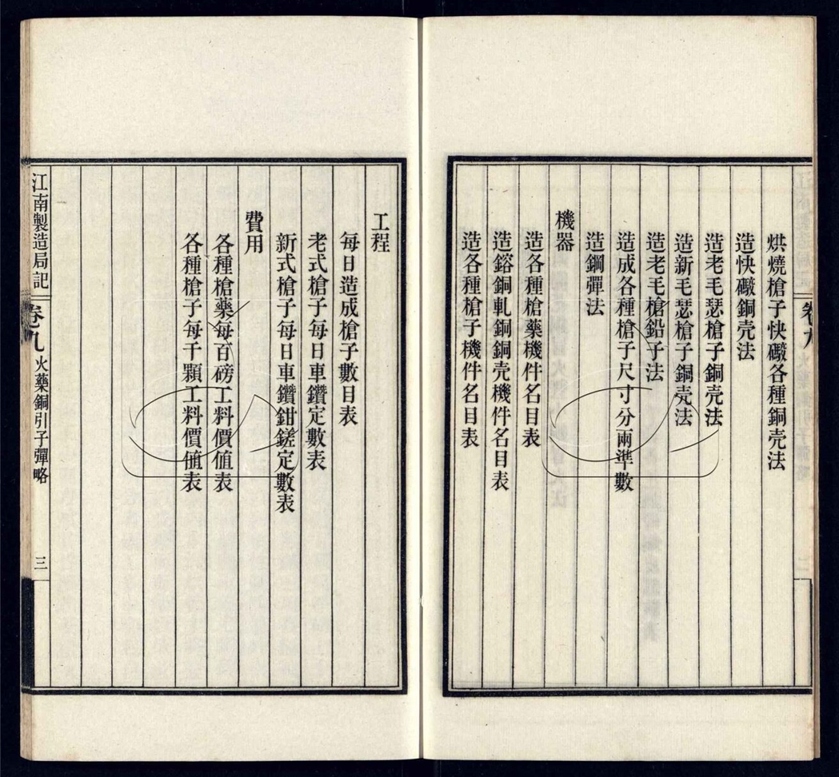 烘燒槍子快礮各種銅壳法
造快礮銅壳法
造老毛瑟槍子銅壳法
造新毛瑟槍子銅壳法
造老毛槍鉛子法
造成各種槍子尺寸分兩準數
造鋼彈法
機器
造各種槍藥機件名目表
造鎔銅軋銅銅壳機件名目表
造各種槍子機件名目表
工程
每日造成槍子數目表
老式槍子每日車鑽定數表
新式槍子每日車鑽鉗鎈定數表
費用
各種槍藥每百磅工料價值表
各種槍子每千顆工料價值表
江南製造局記
卷九
火藥銅引子彈略
三